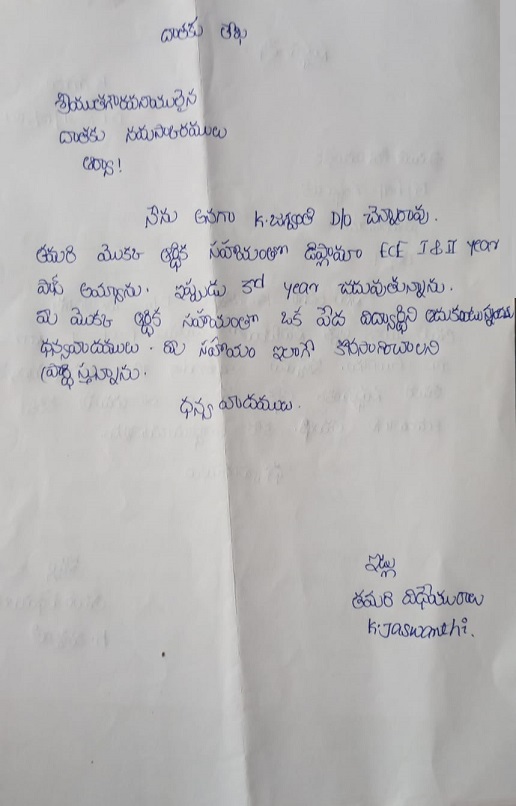 దాతకు లేఖ
శ్రీయుతగౌరవనీయులైన
దాతకు నమస్కారములు
ఆర్యా!
నేను అనగా K.జస్వంతి D/o చెన్నారావు.
తమరి యొక్క ఆర్థిక సహాయంతో డిప్లొమా ECE I & II year
పాస్ అయ్యాను. ఇప్పుడు 3rd year చదువుతున్నాను.
మీ యొక్క ఆర్థిక సహాయంతో ఒక పేద విద్యార్థిని ఆదుకుంటున్నందుకు
ధన్యవాదములు. మీ సహాయం ఇలాగే కొనసాగించాలని
ప్రార్థిస్తున్నాను.
ధన్యవాదములు.
ఇట్లు
తమరి విధేయురాలు
K.Jaswanthi.